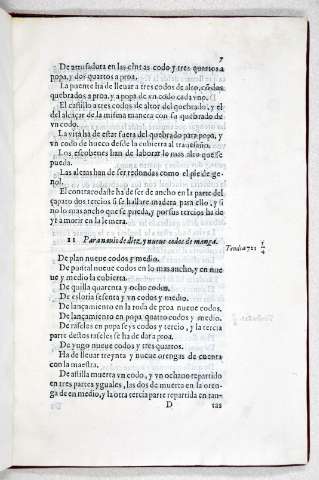 7
De amuradura en las cintas codo y tres quartos a
popa, y dos quartos a proa.
La puente ha de lleuar a tres codos de alto, có dos
quebrados a proa, y a popa de vn codo cada vno.
El castillo a tres codos de altor del quebrado, y el
del alcaçar de la misma manera con su quebrado de
vn codo.
La vita ha de estar fuera del quebrado para popa, y
vn codo de hueco desde la cubierta al trauesaño.
Los escobenes han de laborar lo mas alto que se
pueda.
Las aletas han de ser redondas como el pie de ge-
nol.
El contracodaste ha de ser de ancho en la parte del
çapato dos tercios si se hallare madera para ello, y si
no lo mas ancho que se pueda, y por sus tercios ha de
yr a morir en la lemera.
11 Para nauio de diez, y nueue codos de manga.
Tendra 721 1/4
De plan nueue codos y medio.
De puntal nueue codos en lo mas ancho, y en nue
ue y medio la cubierta.
De quilla quarenta y ocho codos.
De esloria sesenta y vn codos y medio.
De lançamiento en la roda de proa nueue codos.
De lançamiento en popa quatro codos y medio.
De raseles en popa seys codos y tercio, y la tercia
parte destos raseles se ha de dar a proa.
De yugo nueue codos y tres quartos.
Ha de lleuar treynta y nueue orengas de cuenta
con la maestra.
De astilla muerta vn codo, y vn ochauo repartido
en tres partes yguales, las dos de muerta en la oren-
ga de en medio, y la otra tercia parte repartida en tan-
D
tas